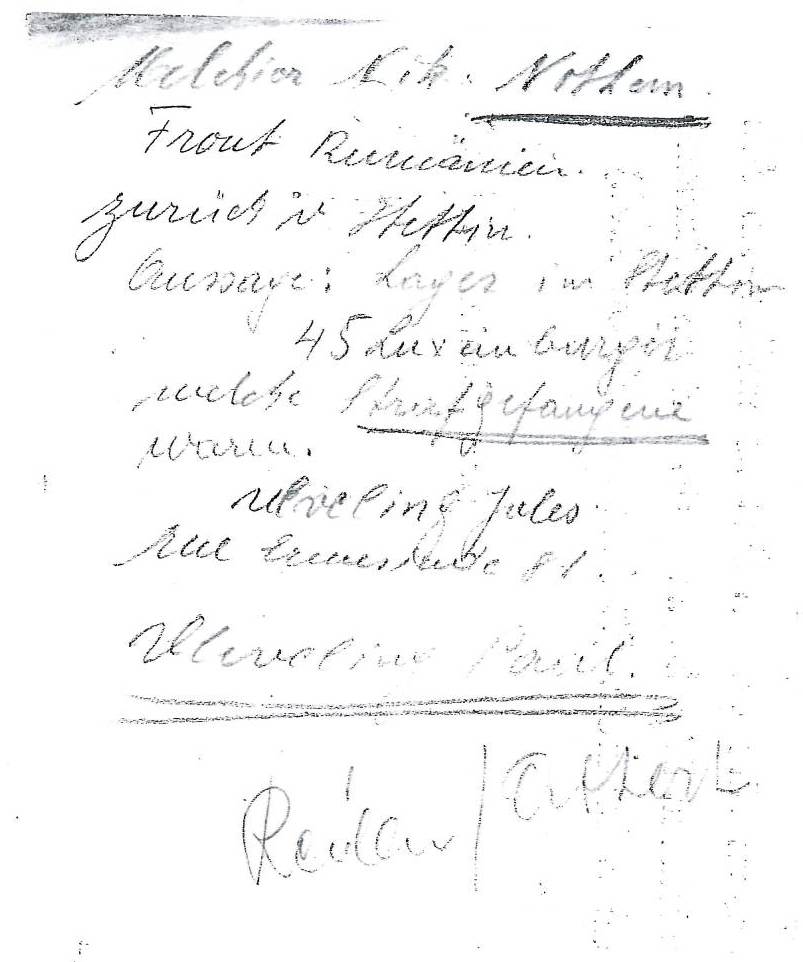 Melchior Nik. Nothum
Front Rumänien.
zurück n Stettin.
Aussage: Lager in Stettin
45 Luxemburger
welche Strafgefangene
waren.
Ulveling Jules
Rue Ermesinde 81.
Ulveling Paul.
Reiden / Attert